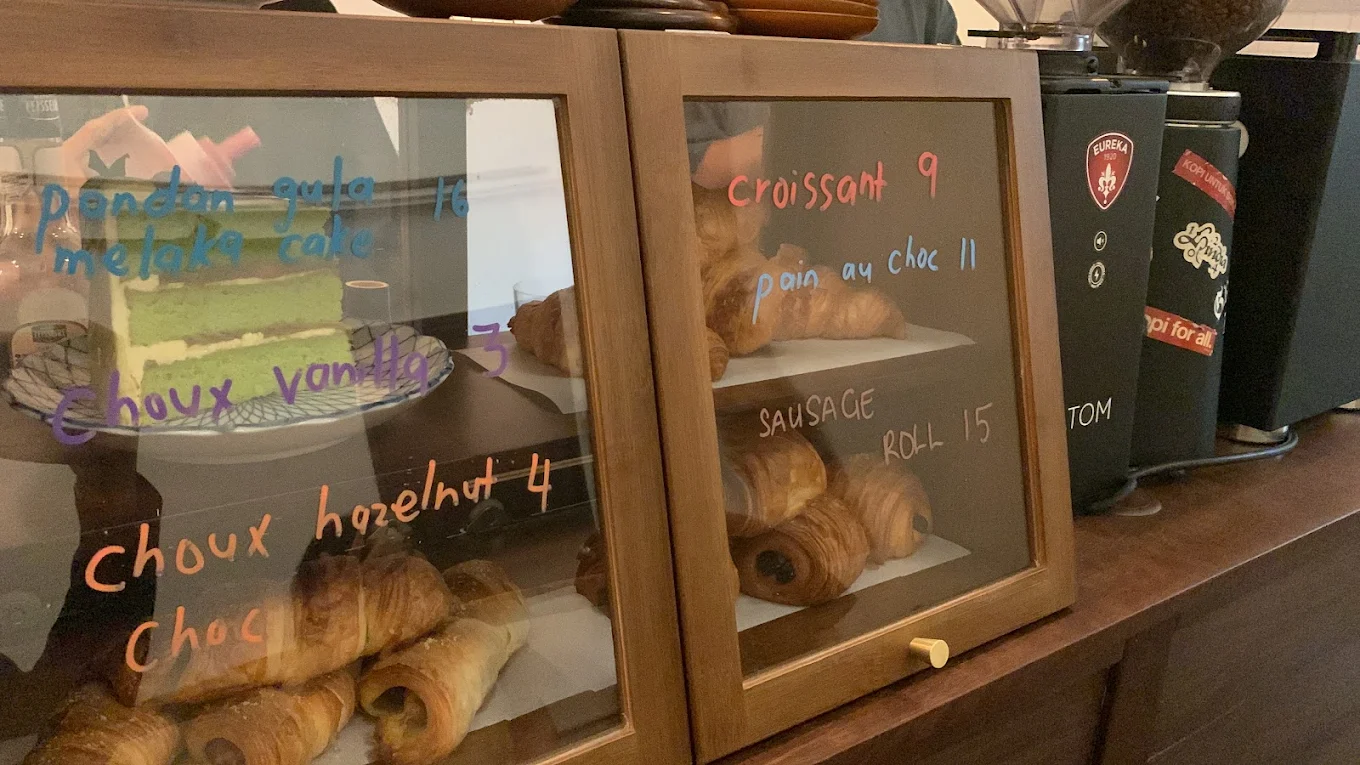 pandan gula 16
melaka cake
choux vanilla 3
choux hazelnut 4
choc
croissant 9
pain au choc 11
SAUSAGE
ROLL 15
EUREKA
1920
TOM
KOPI UNTUK
opi for all.